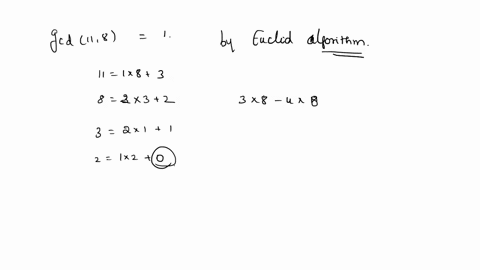 gcd (11,8) = 1. by Euclid algorithm.
11 = 1x8 + 3
8 = 2 x 3 + 2 3 x 8 - 4 x 8
3 = 2 x 1 + 1
2 = 1x2 + 0